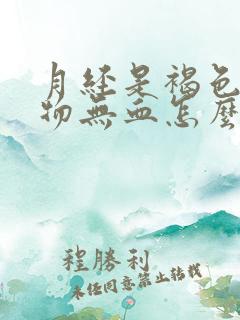 月經是褐色
物無血怎麼
程勝利
未经同意禁止转载